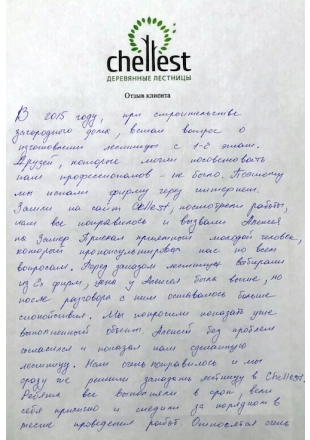 chellest
ДЕРЕВЯННЫЕ ЛЕСТНИЦЫ
Отзыв клиента
В 2015 году, при строительстве
загородного дома, встал вопрос о
изготовлении лестницы с 1-го этаж.
Друзей, которые могли посоветовать
нам профессионалов - не было. Поэтому
мы искали фирму через интернет.
Зашли на сайт Chellest, посмотрели работы,
нам все понравилось и вызвали Алексея
на замер. Приехал приятный молодой человек,
который проконсультировал нас по всем
вопросам. Перед заказом лестницы выбирали
из 2х фирм, цена у Алексея была выше, но
после разговора с ним оставалось больше
спокойствия. Мы попросили показать уже
выполненный объект, Алексей без проблем
согласился и показал нам сделанную
лестницу. Нам очень понравилось и мы
сразу же решили заказать лестницу в Chellest.
Ребята все выполнили в срок, вели
себя прилично и следили за порядком в
месте проведения работ. Относились очень